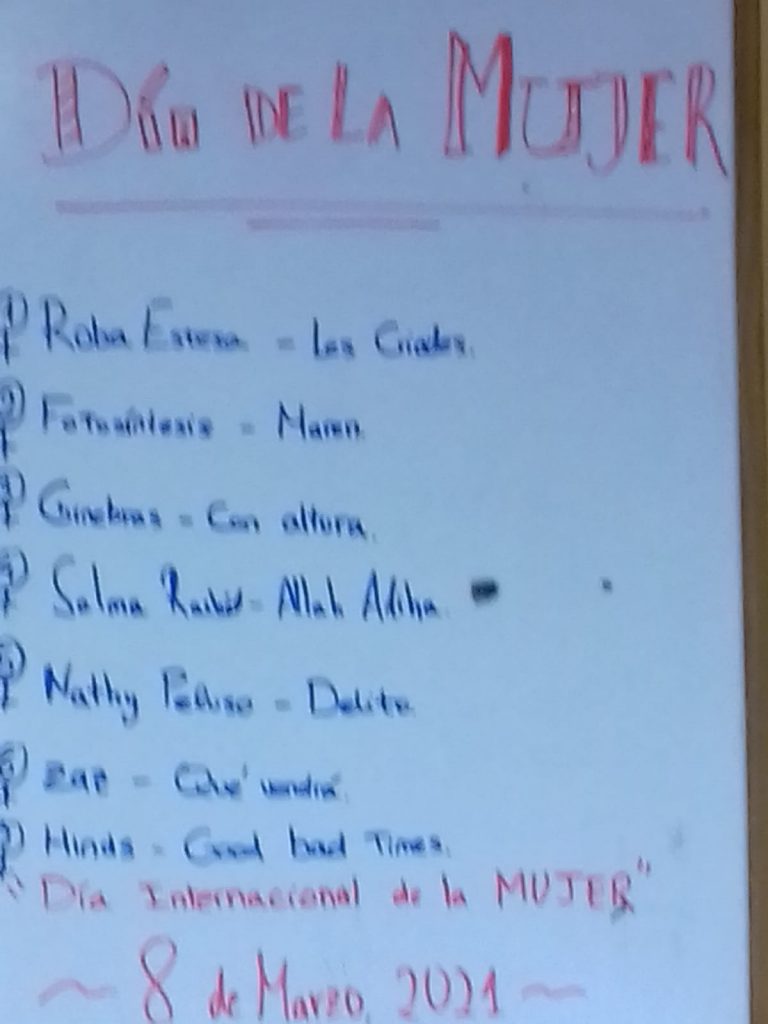 DÍa DE LA MUJER
1) Roba Estesa - Les Criades.
2) Fotosíntesis - Maren
3) Ginebras - Con altura.
4) Salma Rachid - Allah Adiha
5) Nathy Peluso - Delito
6) ZAP - Qué vendrá.
7) Hinds - Good bad Times.
Día Internacional de la MUJER"
~ 8 de Marzo, 2021 ~